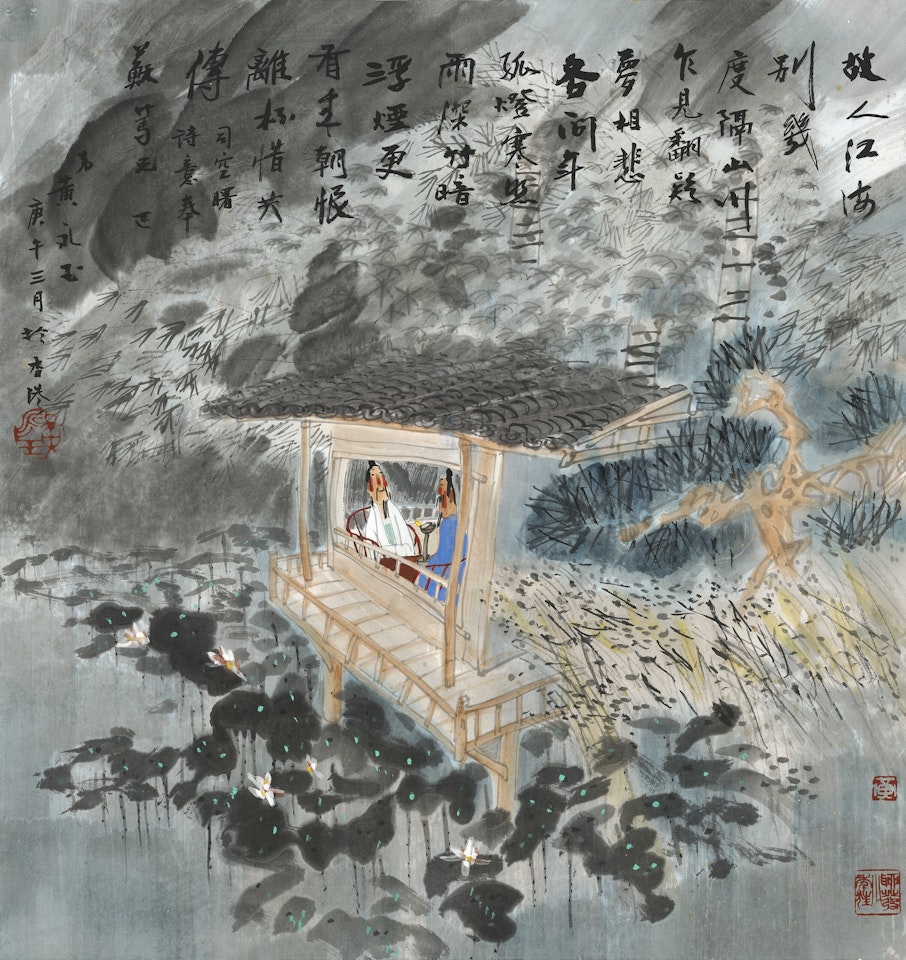 故人江海
别幾
度隔山川
乍見翻疑
夢相悲
各问年
孤燈寒照
雨深竹暗
浮煙更
有来朝恨
離杯惜共
傳
司空曙
詩意奉
蘇
弟黄永玉
庚午三月於香港